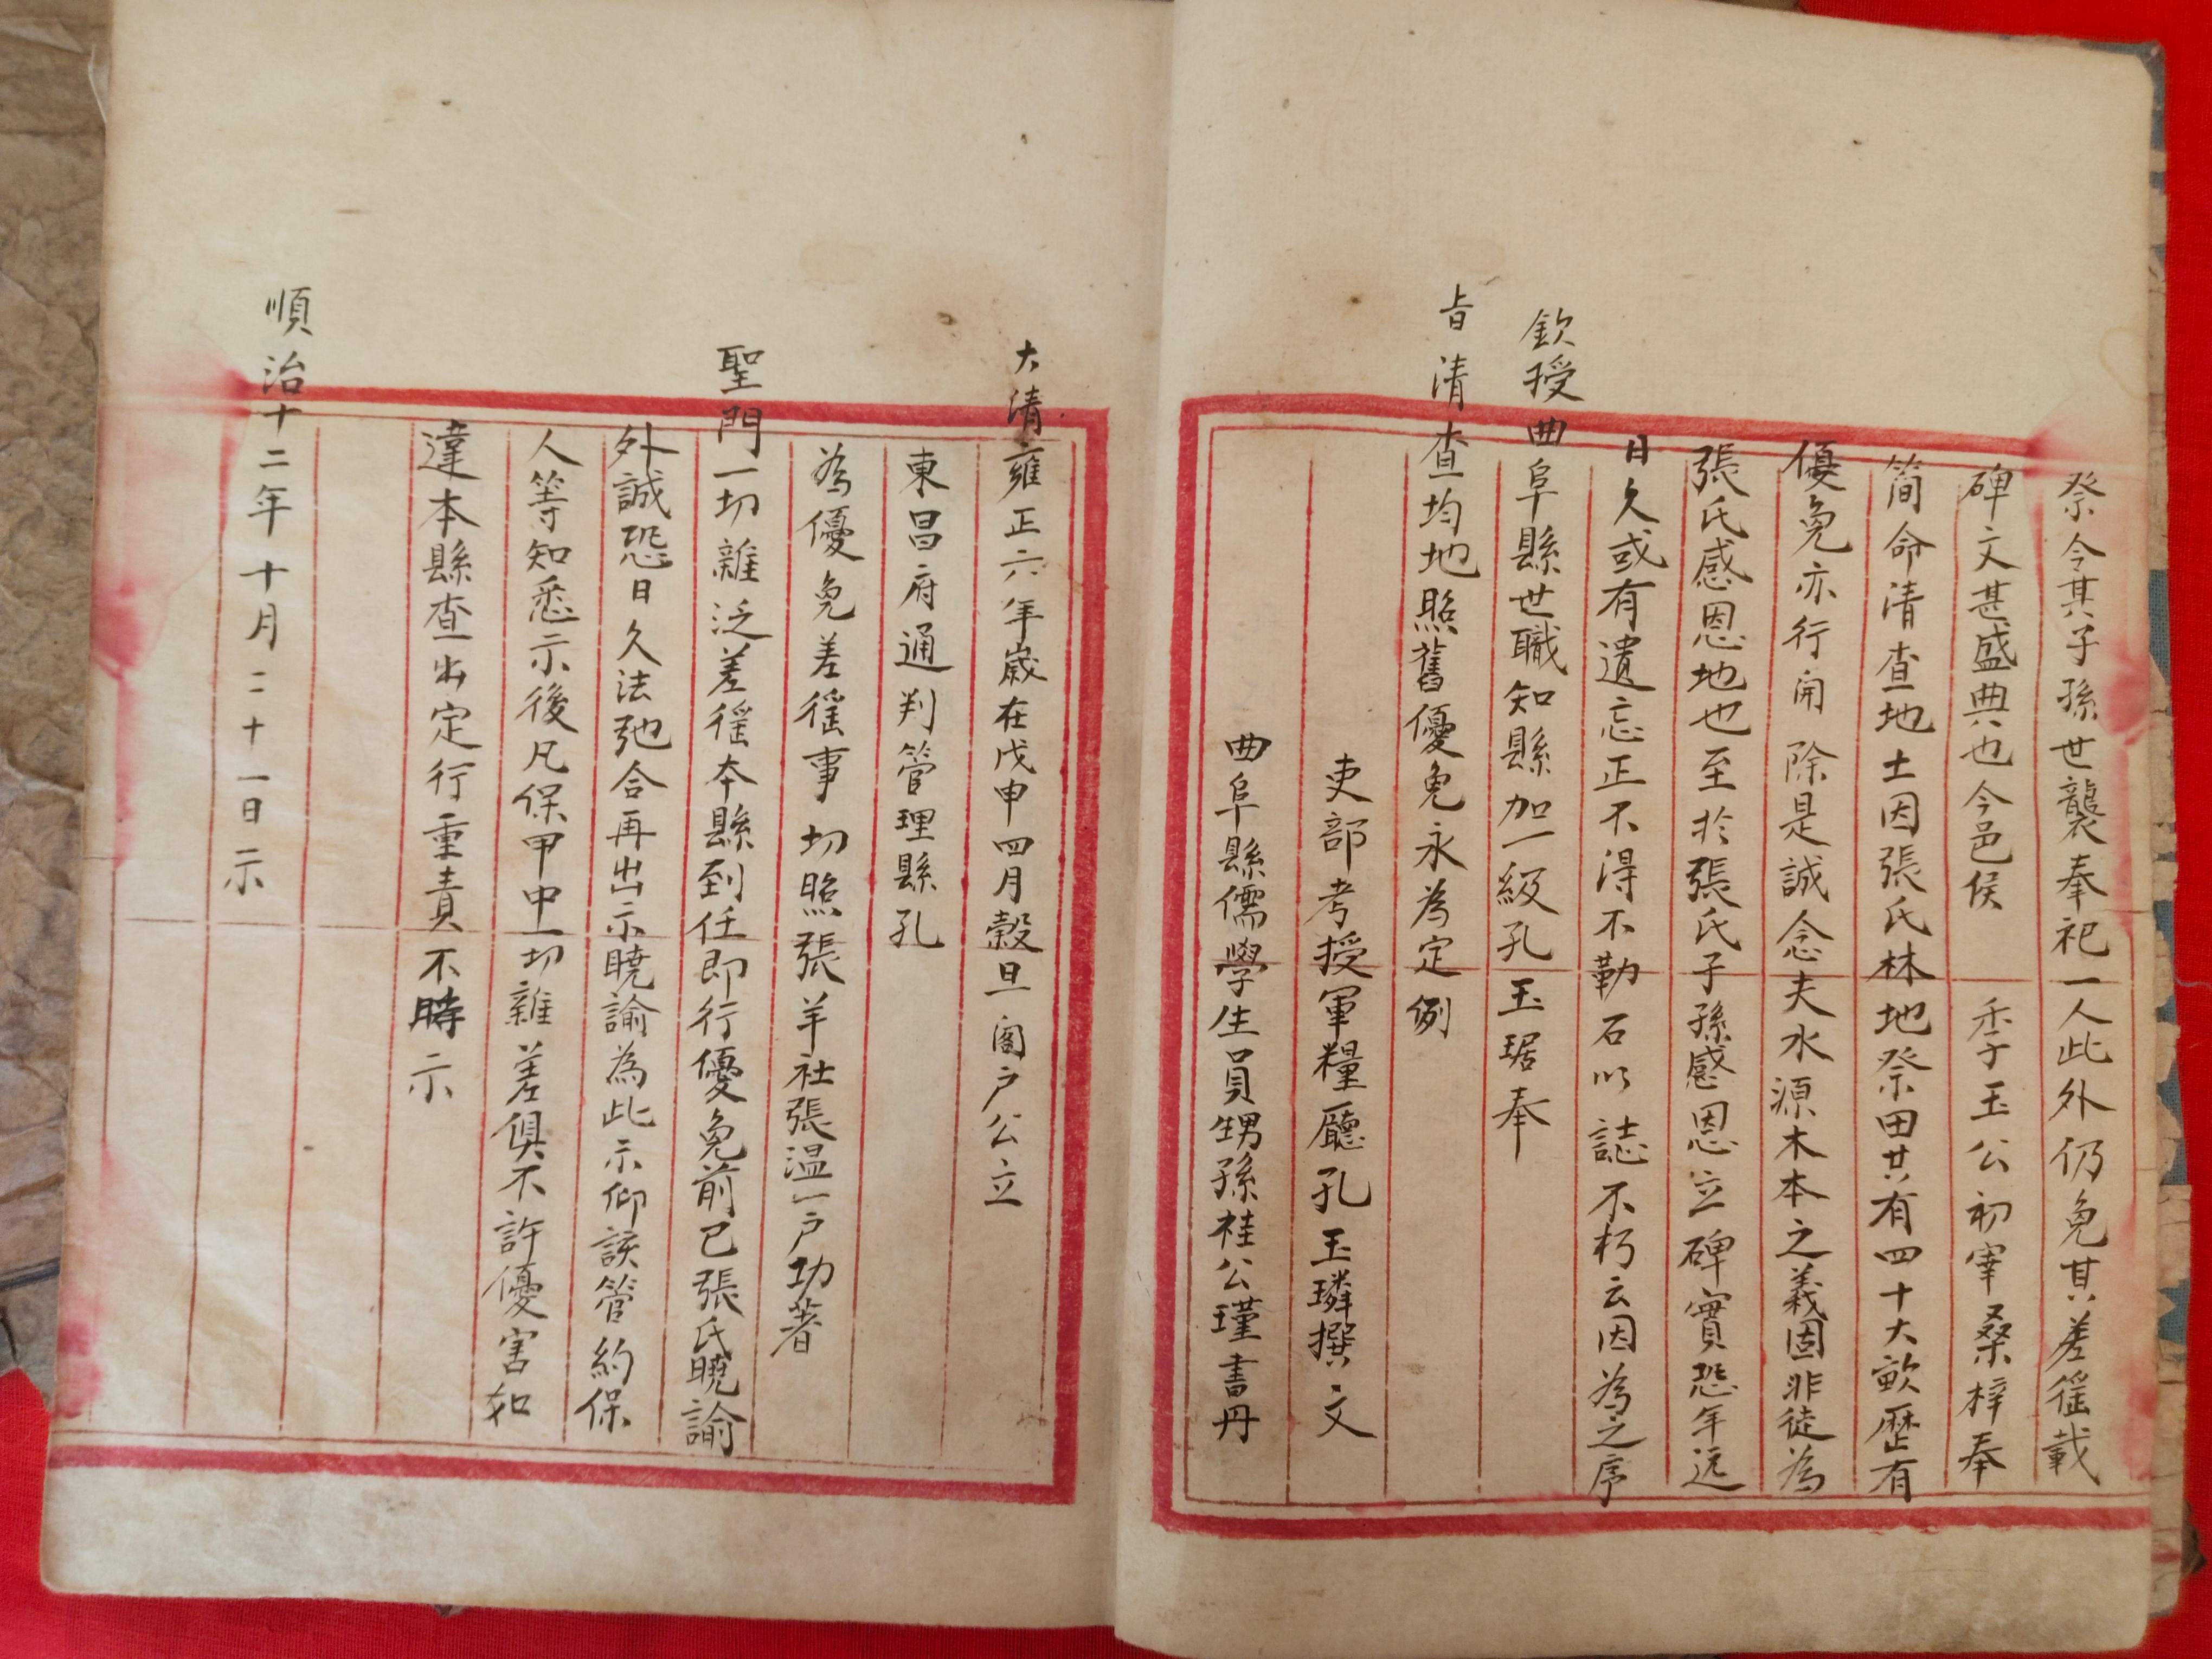 祭令其子孫世襲奉祀一人此外仍免其差徭載
碑文甚盛典也今邑侯 季玉公初宰桑梓奉
簡命清查地土因張氏林地祭田共有四十大畝歷有
優免亦行開除是誠念夫水源木本之義固非徒為
張氏感恩地也至於張氏子孫感恩立碑實恐年远
日久或有遺忘正不得不勒石以誌不朽云因為之序
欽授曲阜縣世職知縣加一級孔玉琚奉
旨清查均地照舊優免永為定例
吏部考授軍糧廳孔玉璘撰文
曲阜縣儒學生員甥孫桂公瑾書丹
大清雍正六年歲在戊申四月穀旦闔户公立
東昌府通判管理縣孔
為優免差徭事切照張羊社張温一户功著
聖門一切雜泛差徭本縣到任即行優免前已張氏曉諭
外誠恐日久法弛合再出示曉諭為此示仰該管約保
人等知悉示後凡保甲中一切雜差俱不許優害如
違本縣查出定行重責不時示
順治十二年十月二十一日示